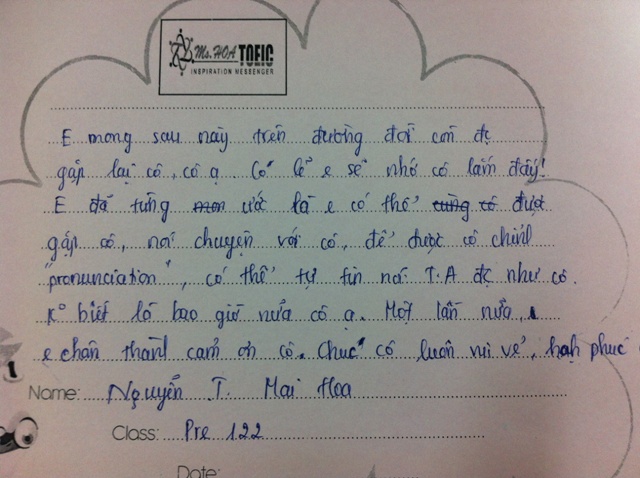 Ms. HOA TOEIC
INSPIRATION MESSENGER
E mong sau này trên đường đời còn đc
gặp lại cô, cô ạ. Có lẽ e sẽ nhớ cô lắm đấy!
E đã từng ước là e có thể được
gặp cô, nói chuyện với cô, để được cô chỉnh
"pronunciation", có thể tự tin nói T.A đc như cô.
K° biết là bao giờ nữa cô ạ. Một lần nữa,
e chân thành cảm ơn cô. Chúc cô luôn vui vẻ, hạh phúc
Name: Nguyễn T. Mai Hoa
Class: Pre 122
Date: